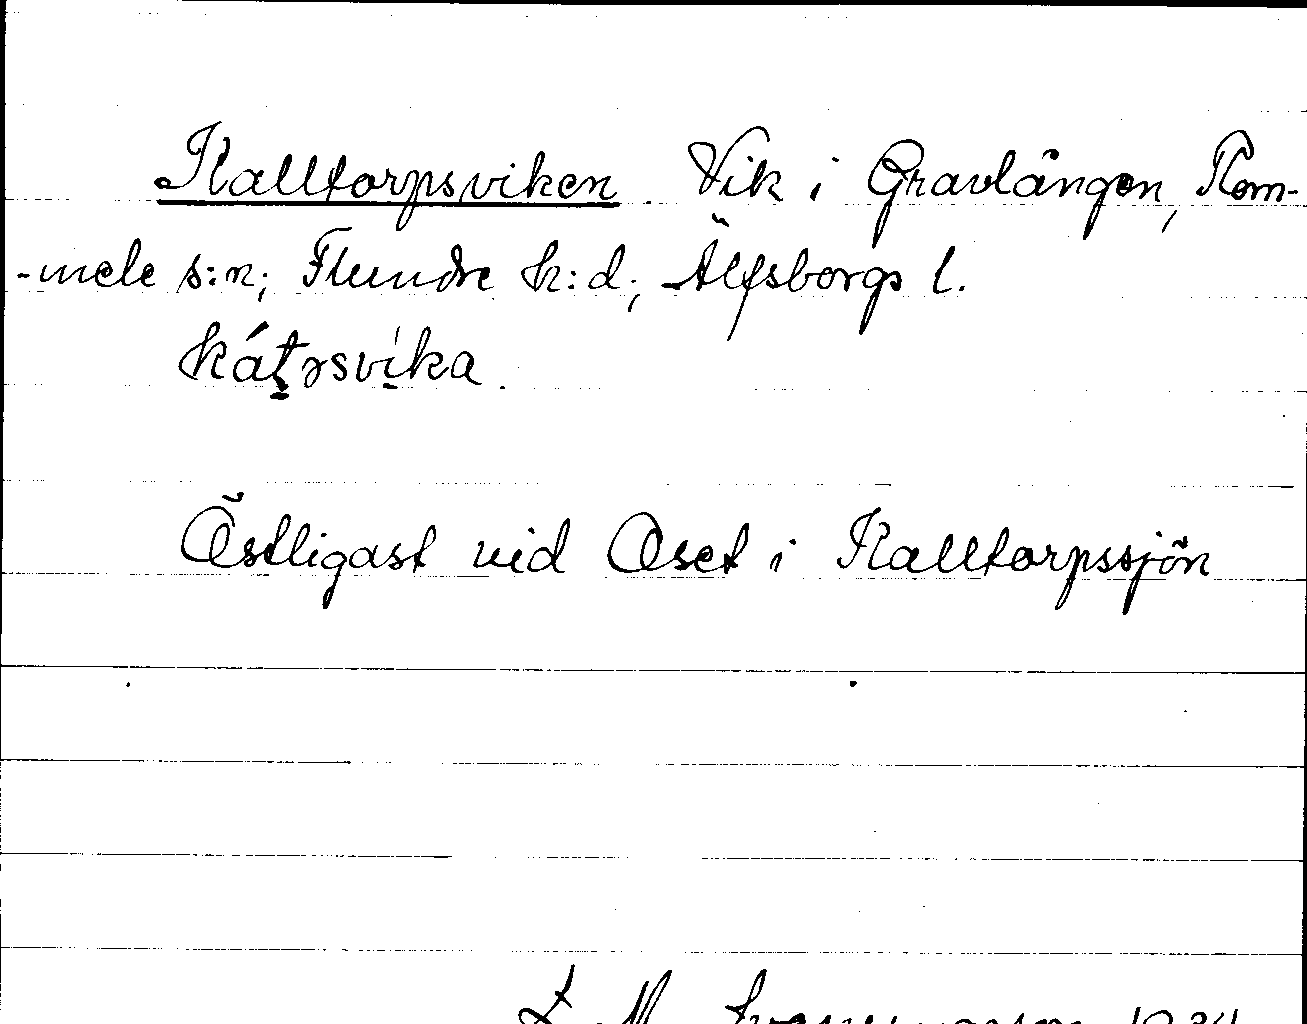 Kalltorpsviken. Vik i Gravlången, Rom-
-mele s:n; Flundre h:d; Älfsborgs l.
káṯɿsvi̱ka.
Östligast vid Oset i Kalltorpssjön
1934